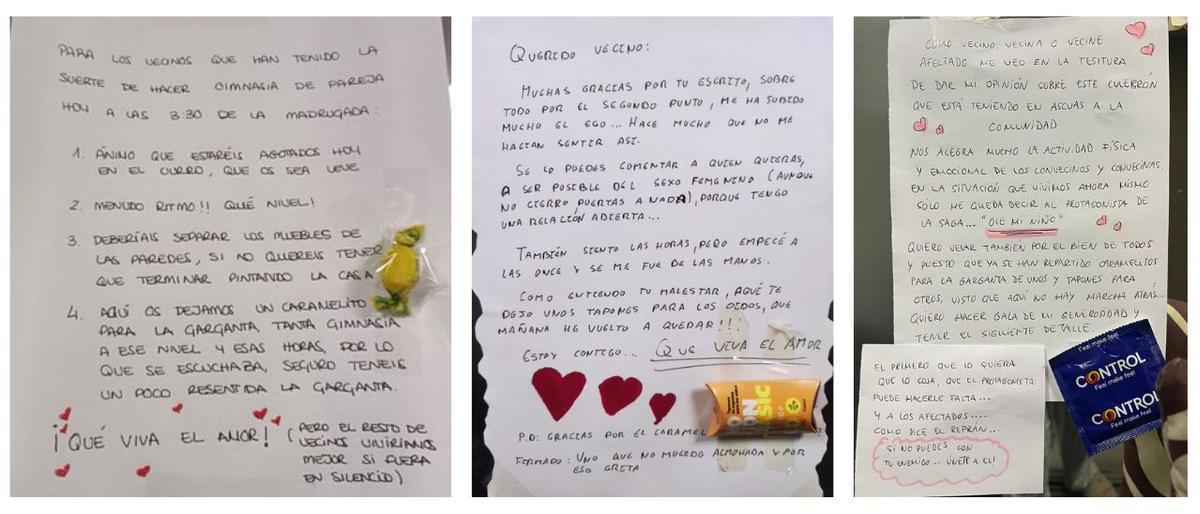 PARA LOS VECINOS QUE HAN TENIDO LA
SUERTE DE HACER GIMNASIA DE PAREJA
HOY A LAS 3:30 DE LA MADRUGADA:
1. ÁNIMO QUE ESTARÉIS AGOTADOS HOY
EN EL CURRO, QUE OS SEA LEVE
2. MENUDO RITMO!! QUÉ NIVEL!
3. DEBERÍAIS SEPARAR LOS MUEBLES DE
LAS PAREDES, SI NO QUEREIS TENER
QUE TERMINAR PINTANDO LA CASA
4. AQUÍ OS DEJAMOS UN CARAMELITO
PARA LA GARGANTA, TANTA GIMNASIA
A ESE NIVEL Y ESAS HORAS, POR LO
QUE SE ESCUCHABA, SEGURO TENEIS
UN POCO RESENTIDA LA GARGANTA.
¡QUÉ VIVA EL AMOR! (PERO EL RESTO DE
VECINOS VIVIRÍAMOS
MEJOR SI FUERA
EN SILENCIO)
QUERIDO VECINO:
MUCHAS GRACIAS POR TU ESCRITO, SOBRE
TODO POR EL SEGUNDO PUNTO, ME HA SUBIDO
MUCHO EL EGO... HACE MUCHO QUE NO ME
HACIAN SENTIR ASI.
SE LO PUEDES COMENTAR A QUIEN QUIERAS,
A SER POSIBLE DEL SEXO FEMENINO (AUNQUE
NO CIERRO PUERTAS A NADA), PORQUE TENGO
UNA RELACIÓN ABIERTA...
TAMBIÉN SIENTO LAS HORAS, PERO EMPECÉ A
LAS ONCE Y SE ME FUE DE LAS MANOS.
COMO ENTIENDO TU MALESTAR, AQUÍ TE
DEJO UNOS TAPONES PARA LOS OIDOS, QUE
MAÑANA HE VUELTO A QUEDAR!!!
ESTOY CONTIGO... QUE VIVA EL AMOR
P.D: GRACIAS POR EL CARAMEL
FORMADO: UNO QUE NO MUERDE ALMOHADA Y POR
ESO GRITA
COMO VECINO, VECINA O VECINE
AFECTADO ME VEO EN LA TESITURA
DE DAR MI OPINIÓN SOBRE ESTE CULEBRÓN
QUE ESTÁ TENIENDO EN ASCUAS A LA
COMUNIDAD
NOS ALEGRA MUCHO LA ACTIVIDAD FÍSICA
Y EMOCIONAL DE LOS CONVECINOS Y CONVECINAS.
EN LA SITUACIÓN QUE VIVIMOS AHORA MISMO
SÓLO ME QUEDA DECIR AL PROTAGONISTA DE
LA SAGA... "OLE MI NIÑO"
QUIERO VELAR TAMBIÉN POR EL BIEN DE TODOS
Y PUESTO QUE YA SE HAN REPARTIDO CARAMELITOS
PARA LA GARGANTA DE UNOS Y TAPONES PARA
OTROS, VISTO QUE AQUÍ NO HAY MARCHA ATRÁS...
QUIERO HACER GALA DE MI GENEROSIDAD Y
TENER EL SIGUIENTE DETALLE.
EL PRIMERO QUE LO QUIERA
QUE LO COJA, QUE EL PROTAGONISTA
PUEDE HACERLE FALTA...
Y A LOS AFECTADOS....
COMO DICE EL REFRÁN...
SI NO PUEDES CON
TU ENEMIGO... ÚNETE A EL!
Feel make feel
CONTROL
Feel make feel
CONTROL
Feel make feel